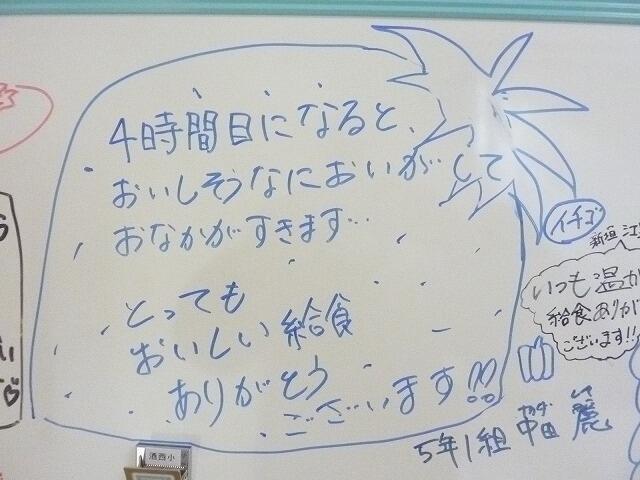 4時間目になると、
おいしそうなにおいがして
おなかがすきます…
とっても
おいしい給食
ありがとう
ございます!!
イチゴ
いつも温か
給食ありが
ございます!!
5年1組
酒西小